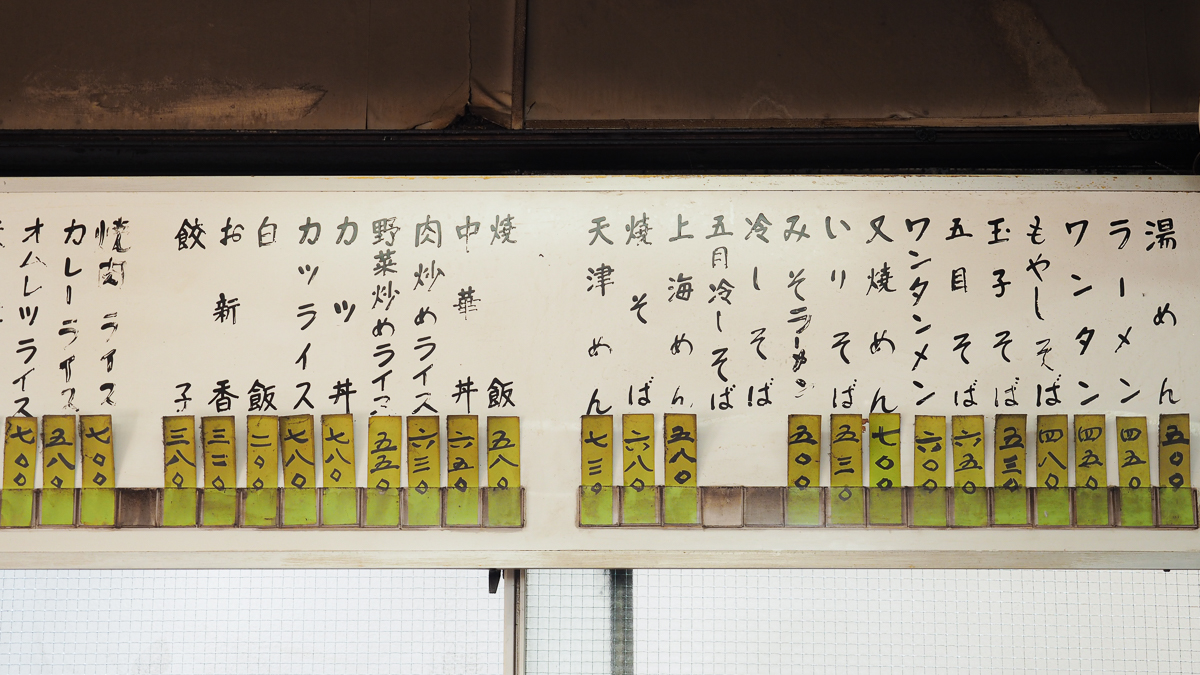 湯めん
五〇〇
ラーメン
四五〇
ワンタン
四五〇
もやしそば
四八〇
玉子そば
五三〇
五目そば
六五〇
ワンタンメン
六〇〇
叉焼めん
七〇〇
いりそば
五三〇
みそラーメン
五〇〇
冷しそば
五目冷しそば
上海めん
五八〇
焼そば
六八〇
天津めん
七三〇
焼飯
五八〇
中華丼
六五〇
肉炒めライス
六三〇
野菜炒めライス
五五〇
カツ丼
七八〇
カツライス
七八〇
白飯
二〇〇
お新香
餃子
三八〇
焼肉ライス
七〇〇
カレーライス
五八〇
オムレツライス
七〇〇